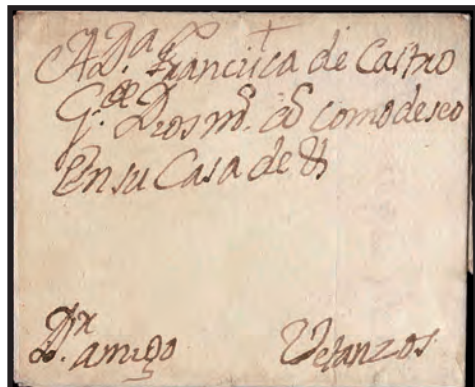 A D.ª Francisca de Castro
G.de Dios m.s a.s como deseo
En su Casa de
amigo Vetanzos